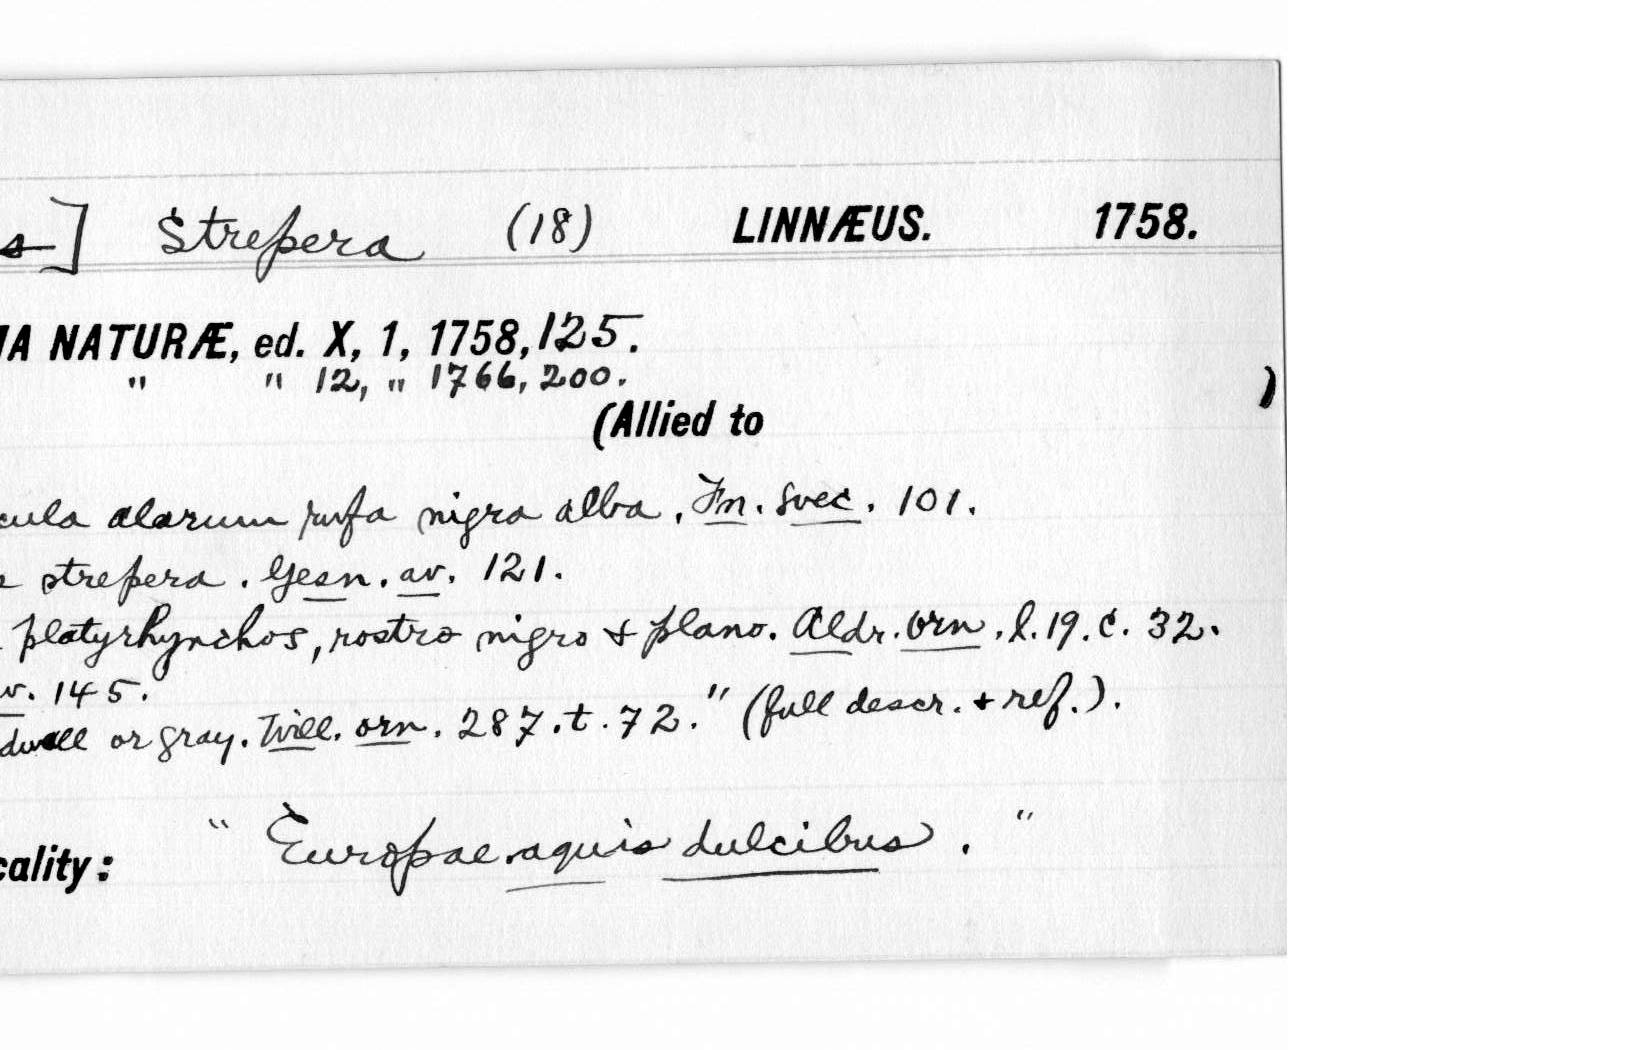 s] Strepera (18) LINNÆUS. 1758.
IA NATURÆ, ed. X, 1, 1758, 125.
" " 12, " 1766, 200.
)
(Allied to
cula alarum rufa nigra alba. Fn. Svec. 101.
strepera. Gesn. av. 121.
platyrhynchos, rostro nigro & plano. Aldr. orn. l. 19. c. 32.
v. 145.
dwall or gray. Will. orn. 287. t. 72." (full descr. & ref.).
cality: "Europae aquis dulcibus."